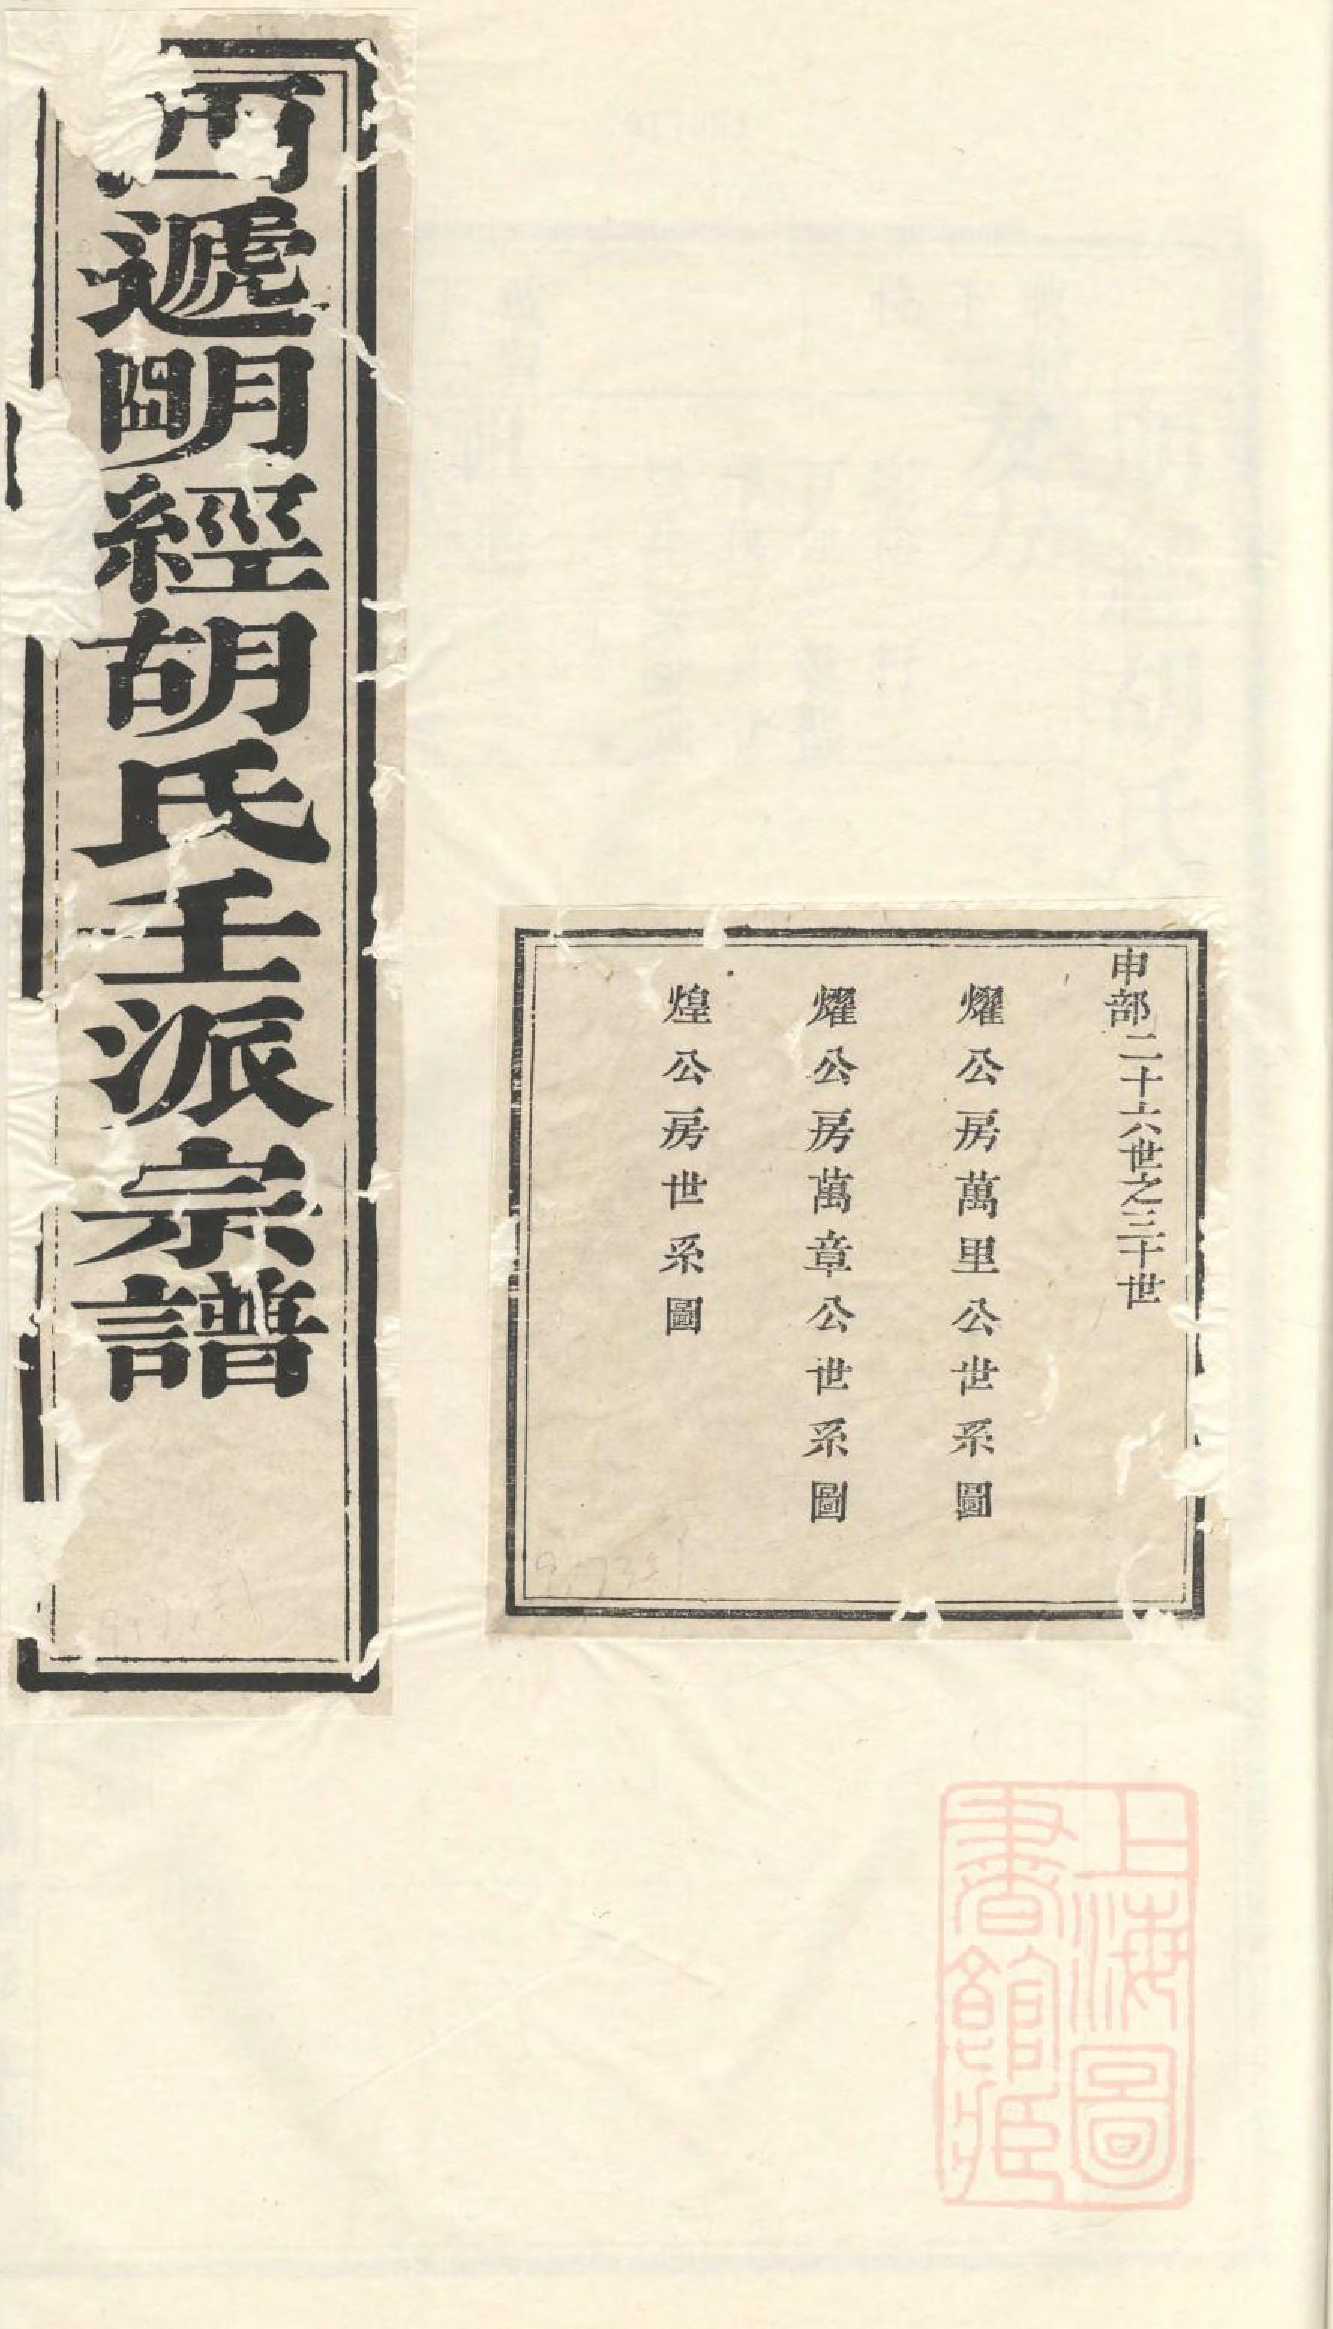 西遞明經胡氏壬派宗譜
申部二十六世之三十世
燿公房萬里公世系圖
燿公房萬章公世系圖
煌公房世系圖
上海圖
書館臧